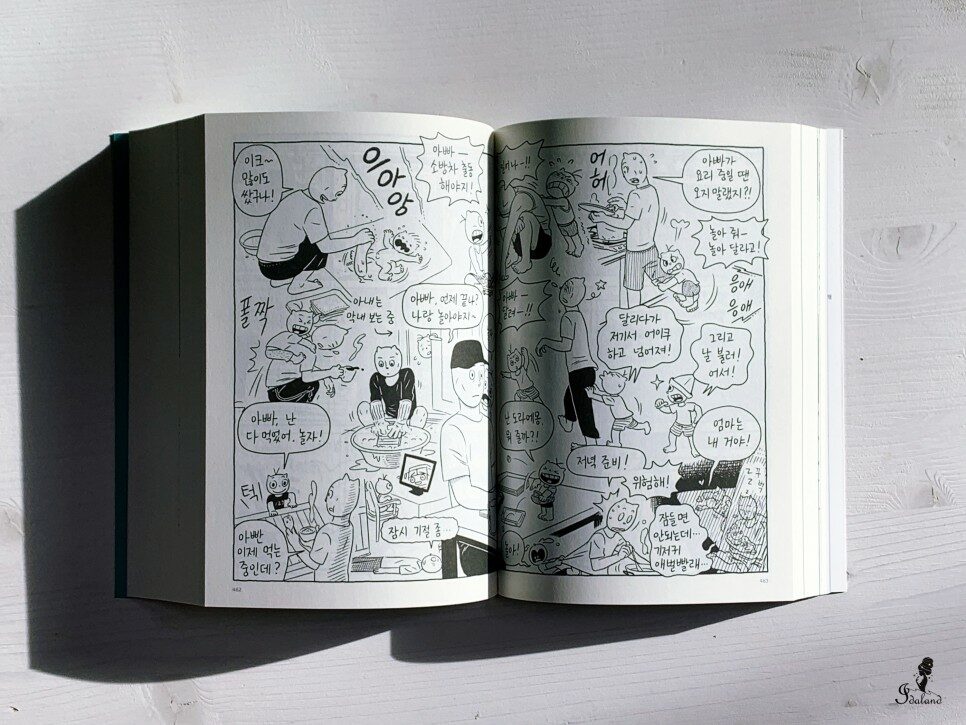 이크~
많이도
쌌구나!
으아앙
아빠 —
소방차 출동
해야지!
폴짝
아내는
막내 보는 중
아빠, 언제 끝나?
나랑 놀아야지~
아빠, 난
다 먹었어. 놀자!
턱!
아빤
이제 먹는
중인데?
잠시 기절 좀…
462
어허
아빠가
요리 중일 땐
오지 말랬지?!
놀아 줘—
놀아 달라고!
응애
응애
아빠 —
달려—!!
달리다가
저기서 어이쿠
하고 넘어져!
그리고
날 불러!
어서!
난 도라에몽.
뭐 줄까?!
저녁 준비!
위험해!
엄마는
내 거야!
놀아!
잠들면
안되는데…
기저귀
애벌빨래…
463
Idaland